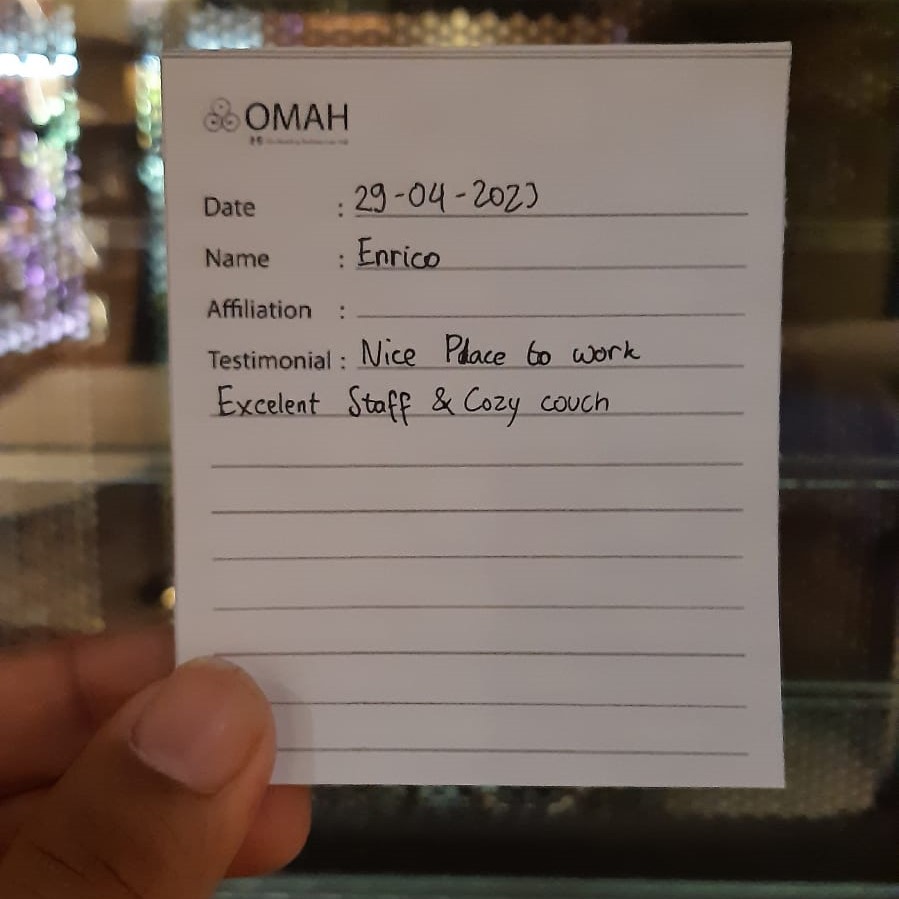 OMAH
Date : 29-04-2023
Name : Enrico
Affiliation :
Testimonial : Nice Place to work
Excelent Staff & Cozy couch